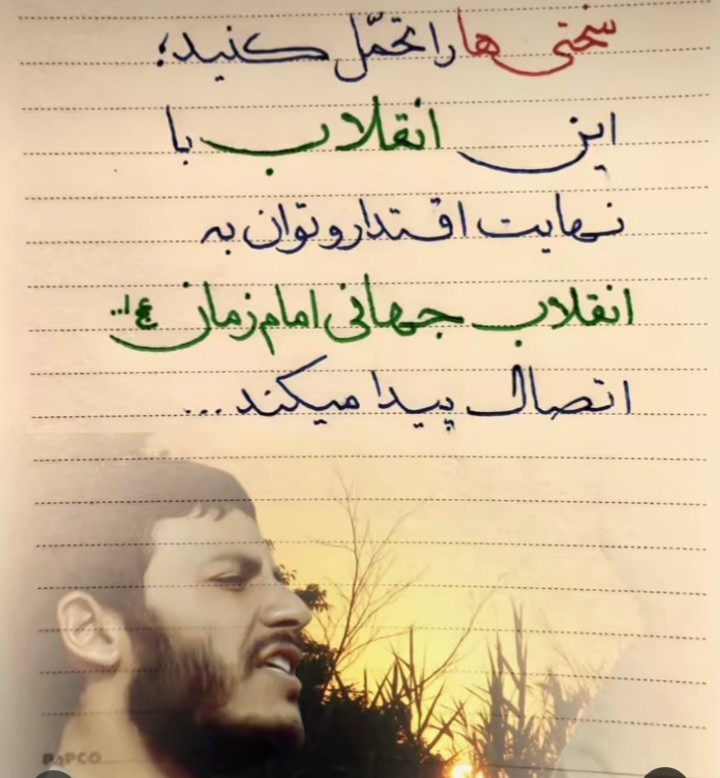 سختی ها را تحمّل کنید؛
این انقلاب با
نهایت اقتدار و توان به
انقلاب جهانی امام زمان عج...
اتصال پیدا میکند...
PAPCO